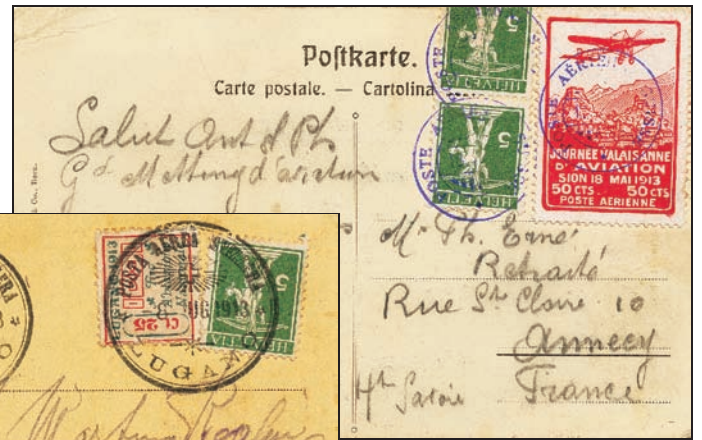 Postkarte.
Carte postale. — Cartolina
Salut Ant & Ph
Gd Metteng d'aviation
5
HELVETIA
5
HELVETIA
POSTE AÉRIENNE
JOURNÉE VALAISANNE
D'AVIATION
SION 18 MAI 1913
50 CTS. 50 CTS
POSTE AERIENNE
Mr Ph. Erné
Retraité
Rue St Claire 10
Annecy
Hte Savoie France
LUGANO 1913
Ct. 25
5
HELVETIA
POSTA AEREA SVIZZERA
1913
LUGANO